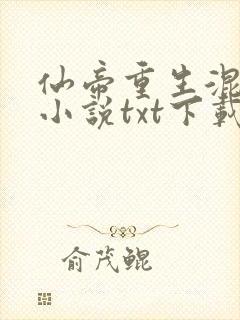 仙帝重生混
小說txt下載
俞茂鲲